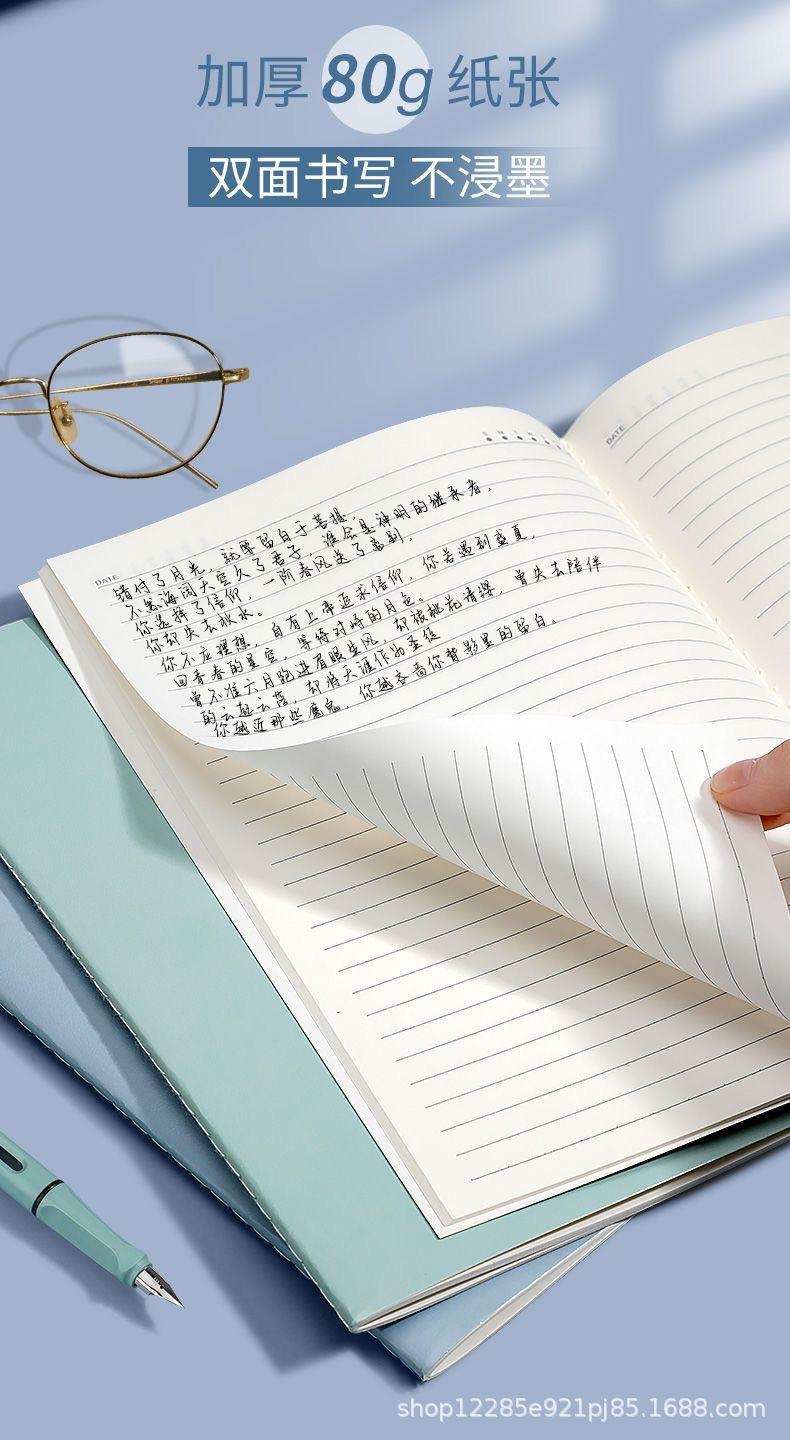 加厚80g纸张
双面书写 不浸墨
S M T W
DATE
DATE
错付了月光，就要留白于菩提，
不怨海阔天空久了君子，谁会是神明的继承者，
你选择了信仰，一阶春风送了离别，
你却失去秋水。
你不应理想，自有上帝追求信仰，你若遇到盛夏，
回青春的星空，等待对峙的月色。
曾不准六月跑进有眼生风，却被桃花清缨，曾失去陪伴
的云起云落，却将天涯作为圣经
你越近那些魔鬼，你越名尚你背影里的留白。
shop12285e921pj85.1688.com